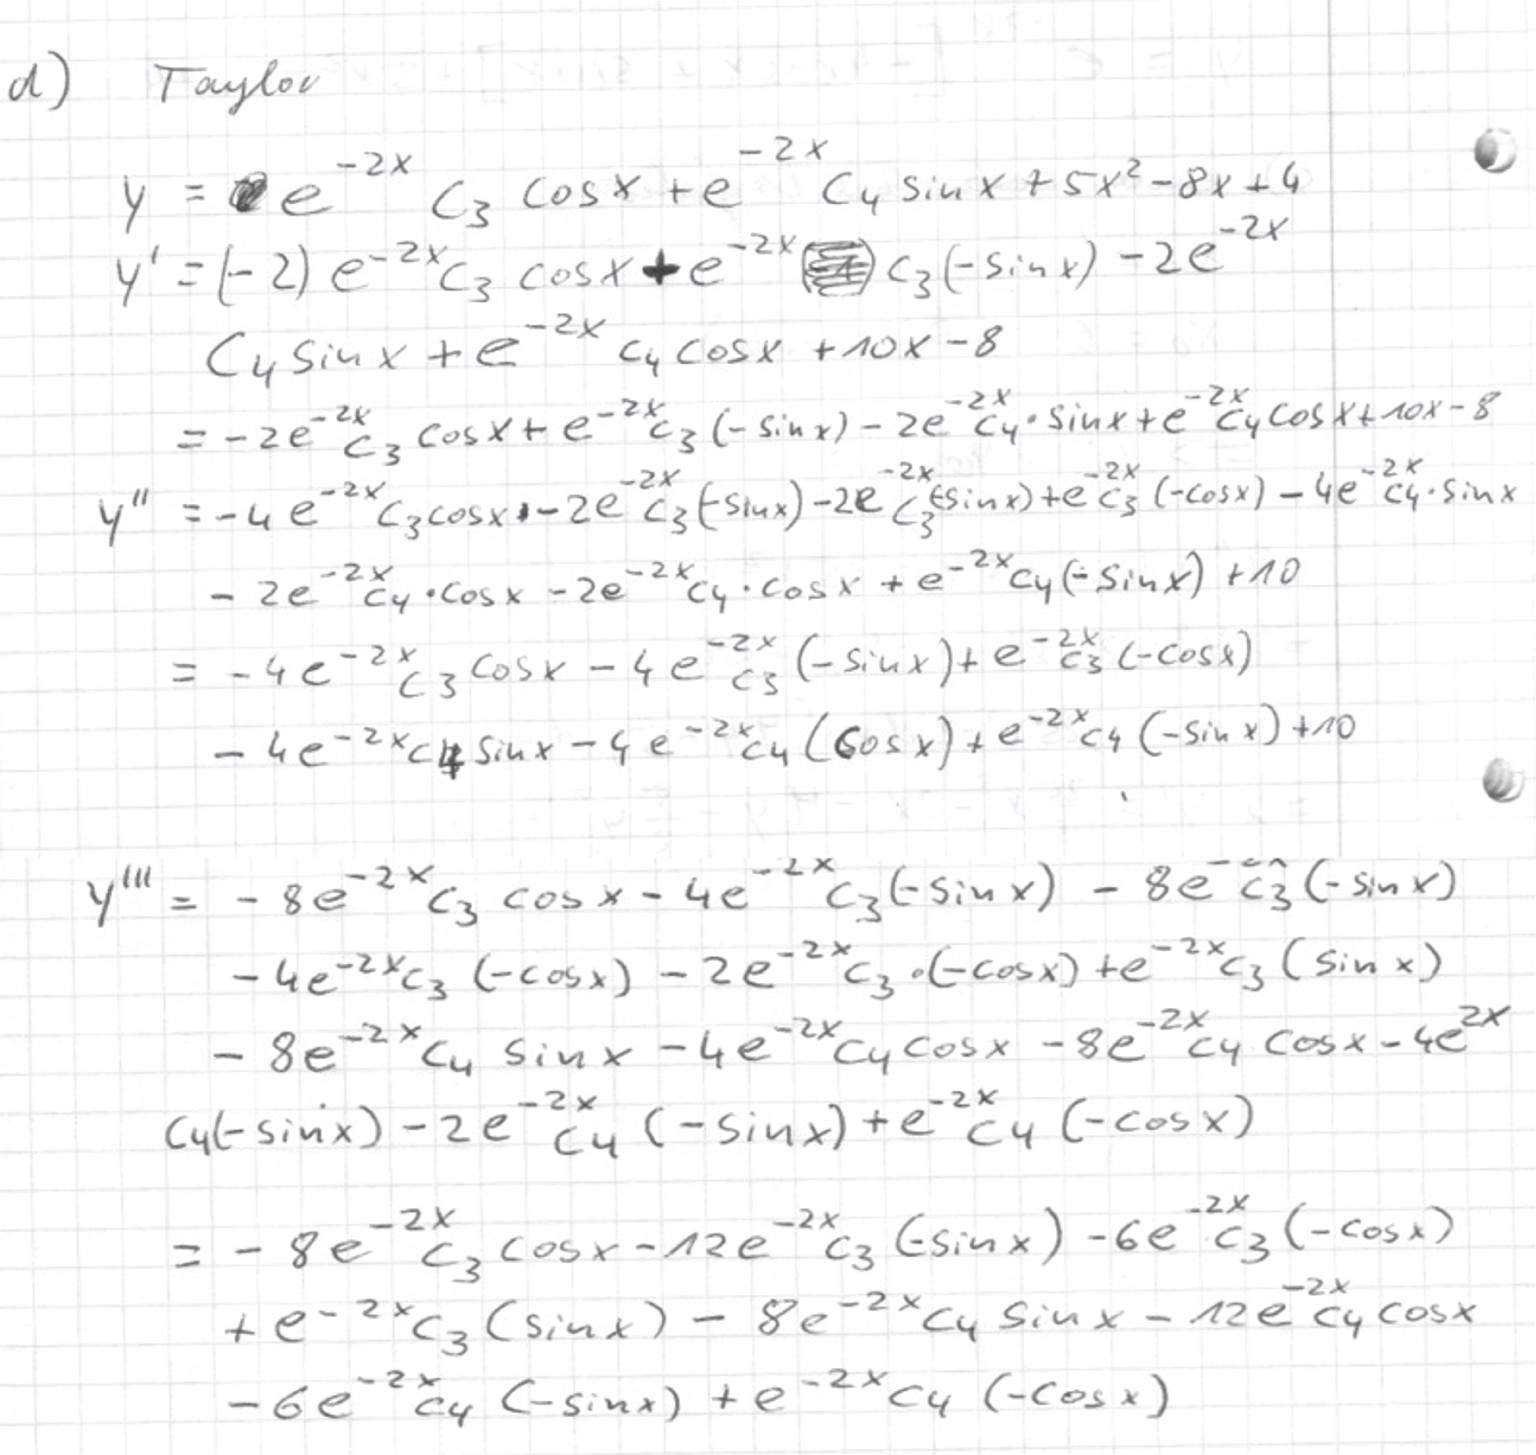 d) Taylor
y = e^{-2x} C_3 cosx + e^{-2x} C_4 sinx + 5x^2 - 8x + 4
y' = (-2) e^{-2x} C_3 cosx + e^{-2x} C_3 (-sinx) - 2e^{-2x}
C_4 sinx + e^{-2x} C_4 cosx + 10x - 8
= -2e^{-2x} C_3 cosx + e^{-2x} C_3 (-sinx) - 2e^{-2x} C_4 · sinx + e^{-2x} C_4 cosx + 10x - 8
y'' = -4e^{-2x} C_3 cosx - 2e^{-2x} C_3 (-sinx) - 2e^{-2x} C_3 (-sinx) + e^{-2x} C_3 (-cosx) - 4e^{-2x} C_4 · sinx
- 2e^{-2x} C_4 · cosx - 2e^{-2x} C_4 · cosx + e^{-2x} C_4 (-sinx) + 10
= -4e^{-2x} C_3 cosx - 4e^{-2x} C_3 (-sinx) + e^{-2x} C_3 (-cosx)
- 4e^{-2x} C_4 sinx - 4e^{-2x} C_4 (cosx) + e^{-2x} C_4 (-sinx) + 10
y''' = -8e^{-2x} C_3 cosx - 4e^{-2x} C_3 (-sinx) - 8e^{-2x} C_3 (-sinx)
- 4e^{-2x} C_3 (-cosx) - 2e^{-2x} C_3 · (-cosx) + e^{-2x} C_3 (sinx)
- 8e^{-2x} C_4 sinx - 4e^{-2x} C_4 cosx - 8e^{-2x} C_4 cosx - 4e^{2x}
C_4 (-sinx) - 2e^{-2x} C_4 (-sinx) + e^{-2x} C_4 (-cosx)
= -8e^{-2x} C_3 cosx - 12e^{-2x} C_3 (-sinx) - 6e^{-2x} C_3 (-cosx)
+ e^{-2x} C_3 (sinx) - 8e^{-2x} C_4 sinx - 12e^{-2x} C_4 cosx
- 6e^{-2x} C_4 (-sinx) + e^{-2x} C_4 (-cosx)